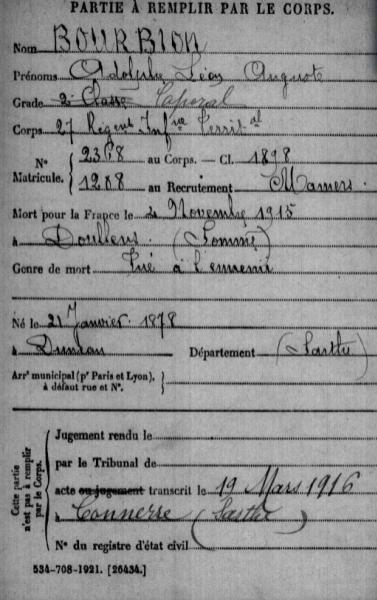 PARTIE À REMPLIR PAR LE CORPS.
Nom BOURBION
Prénoms Adolphe Léon Auguste
Grade 2e Classe Caporal
Corps 27 Régent Infrie Territal
N° Matricule. 2368 au Corps. — Cl. 1898
1288 au Recrutement Mamers
Mort pour la France le 2 Novembre 1915
à Doullens (Somme)
Genre de mort Tué à l'ennemi
Né le 21 Janvier 1878
à Département (Sarthe)
Arrt municipal (pr Paris et Lyon), à défaut rue et N°.
Cette partie n'est pas à remplir par le Corps.
Jugement rendu le
par le Tribunal de
acte ou jugement transcrit le 19 Mars 1916
à Connerré (Sarthe)
N° du registre d'état civil
534-708-1921. [26434.]